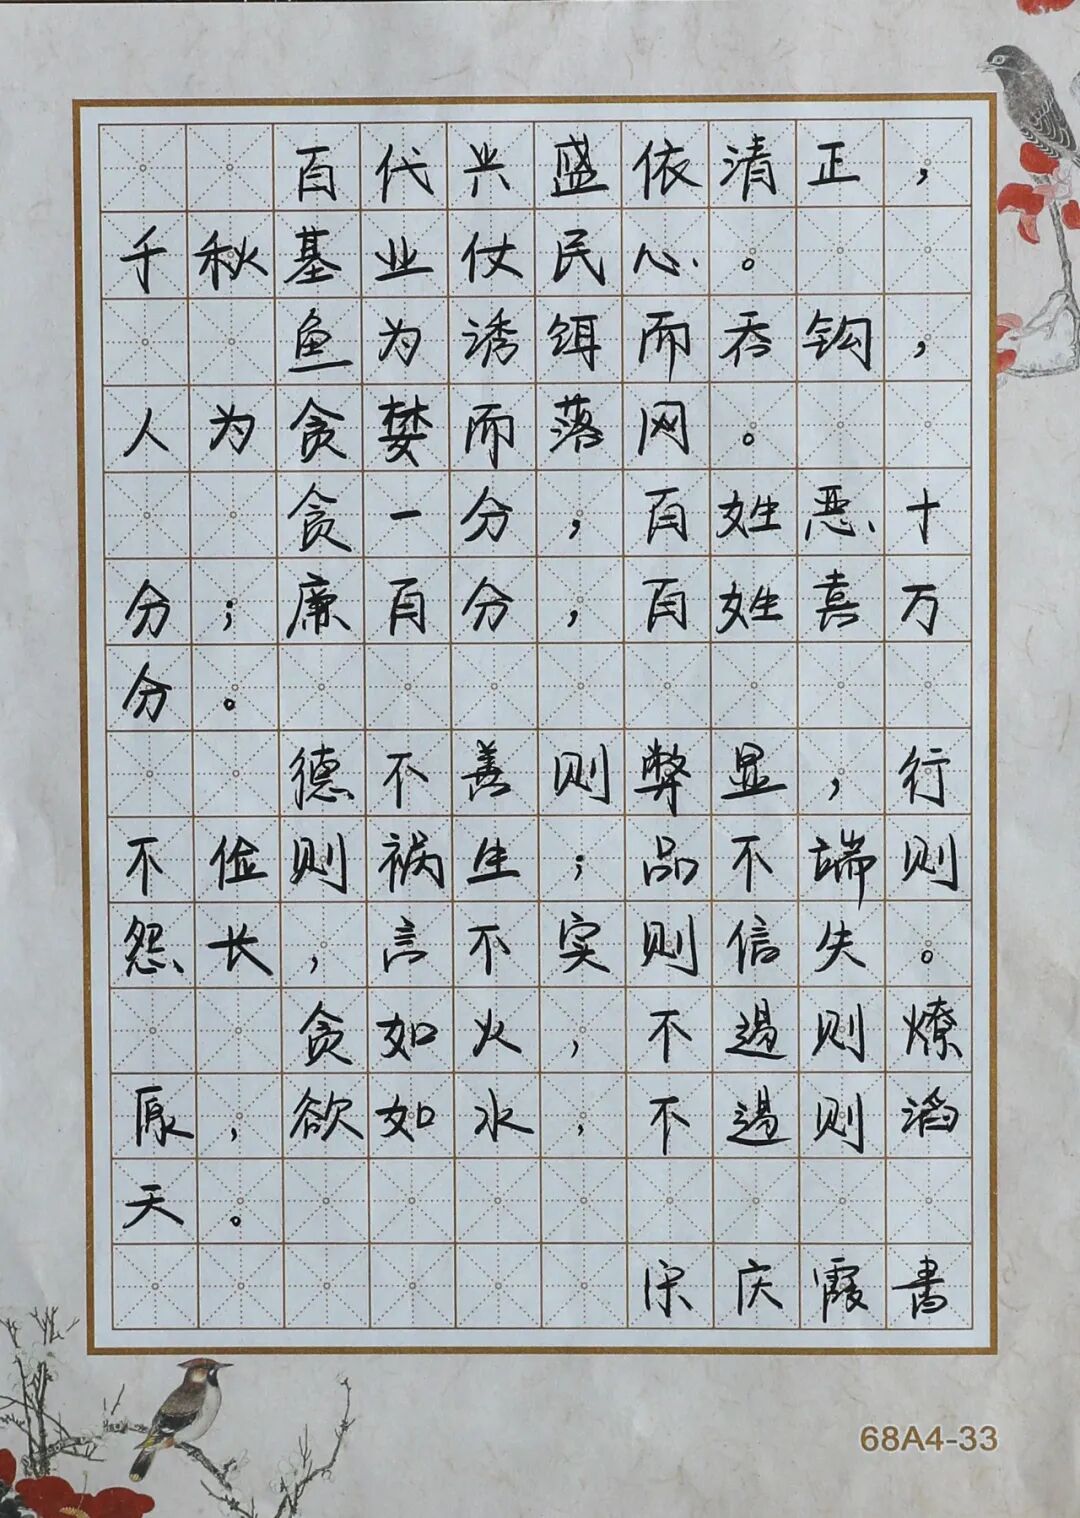 百代兴盛依清正，
千秋基业仗民心。
鱼为诱饵而吞钩，
人为贪婪而落网。
贪一分，百姓恶十
分；廉百分，百姓喜万
分。
德不善则弊显，行
不俭则祸生；品不端则
怨长，言不实则信失。
贪如火，不遏则燎
原，欲如水，不遏则滔
天。
宋庆霞書
68A4-33